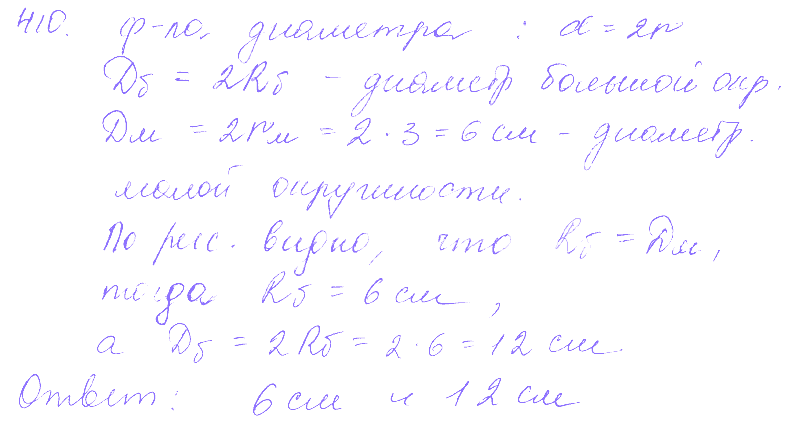 410. ф-ла диаметра : d = 2r
Dб = 2Rб - диаметр большой окр.
Dм = 2rм = 2 · 3 = 6 см - диаметр.
малой окружности.
По рис. видно, что Rб = Dм,
тогда Rб = 6 см,
а Dб = 2Rб = 2 · 6 = 12 см
Ответ: 6 см и 12 см